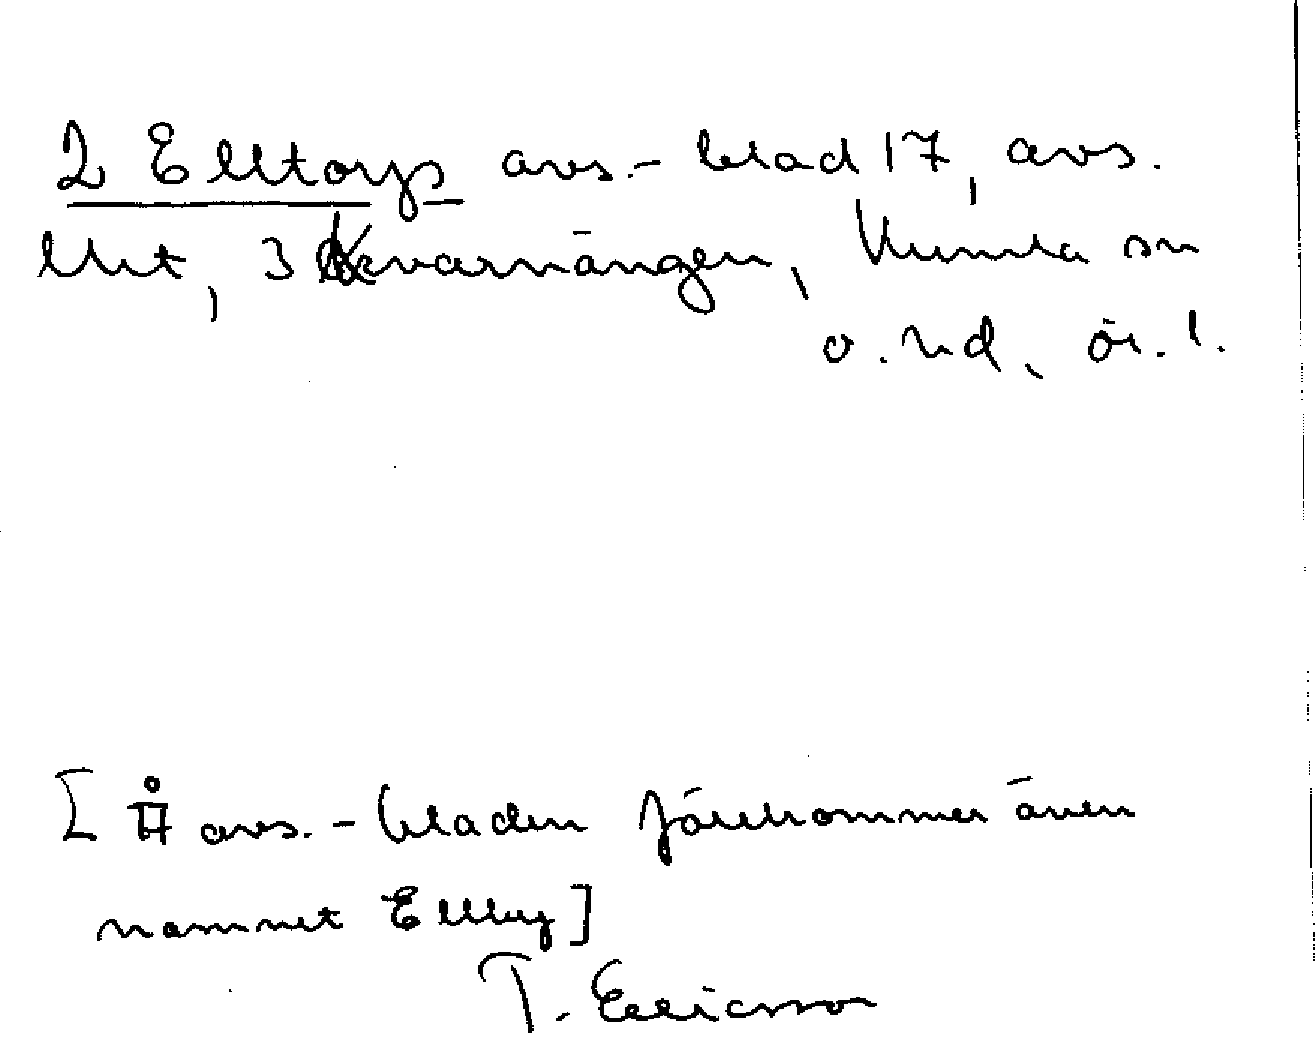 2 Elltorps avs.-blad 17, avs.
litt, 3 Kvarnängen, Kumla sn
o. hd, Ör. l.
[Å avs.-bladen förekommer även
namnet Ellby]
T. Ericsson